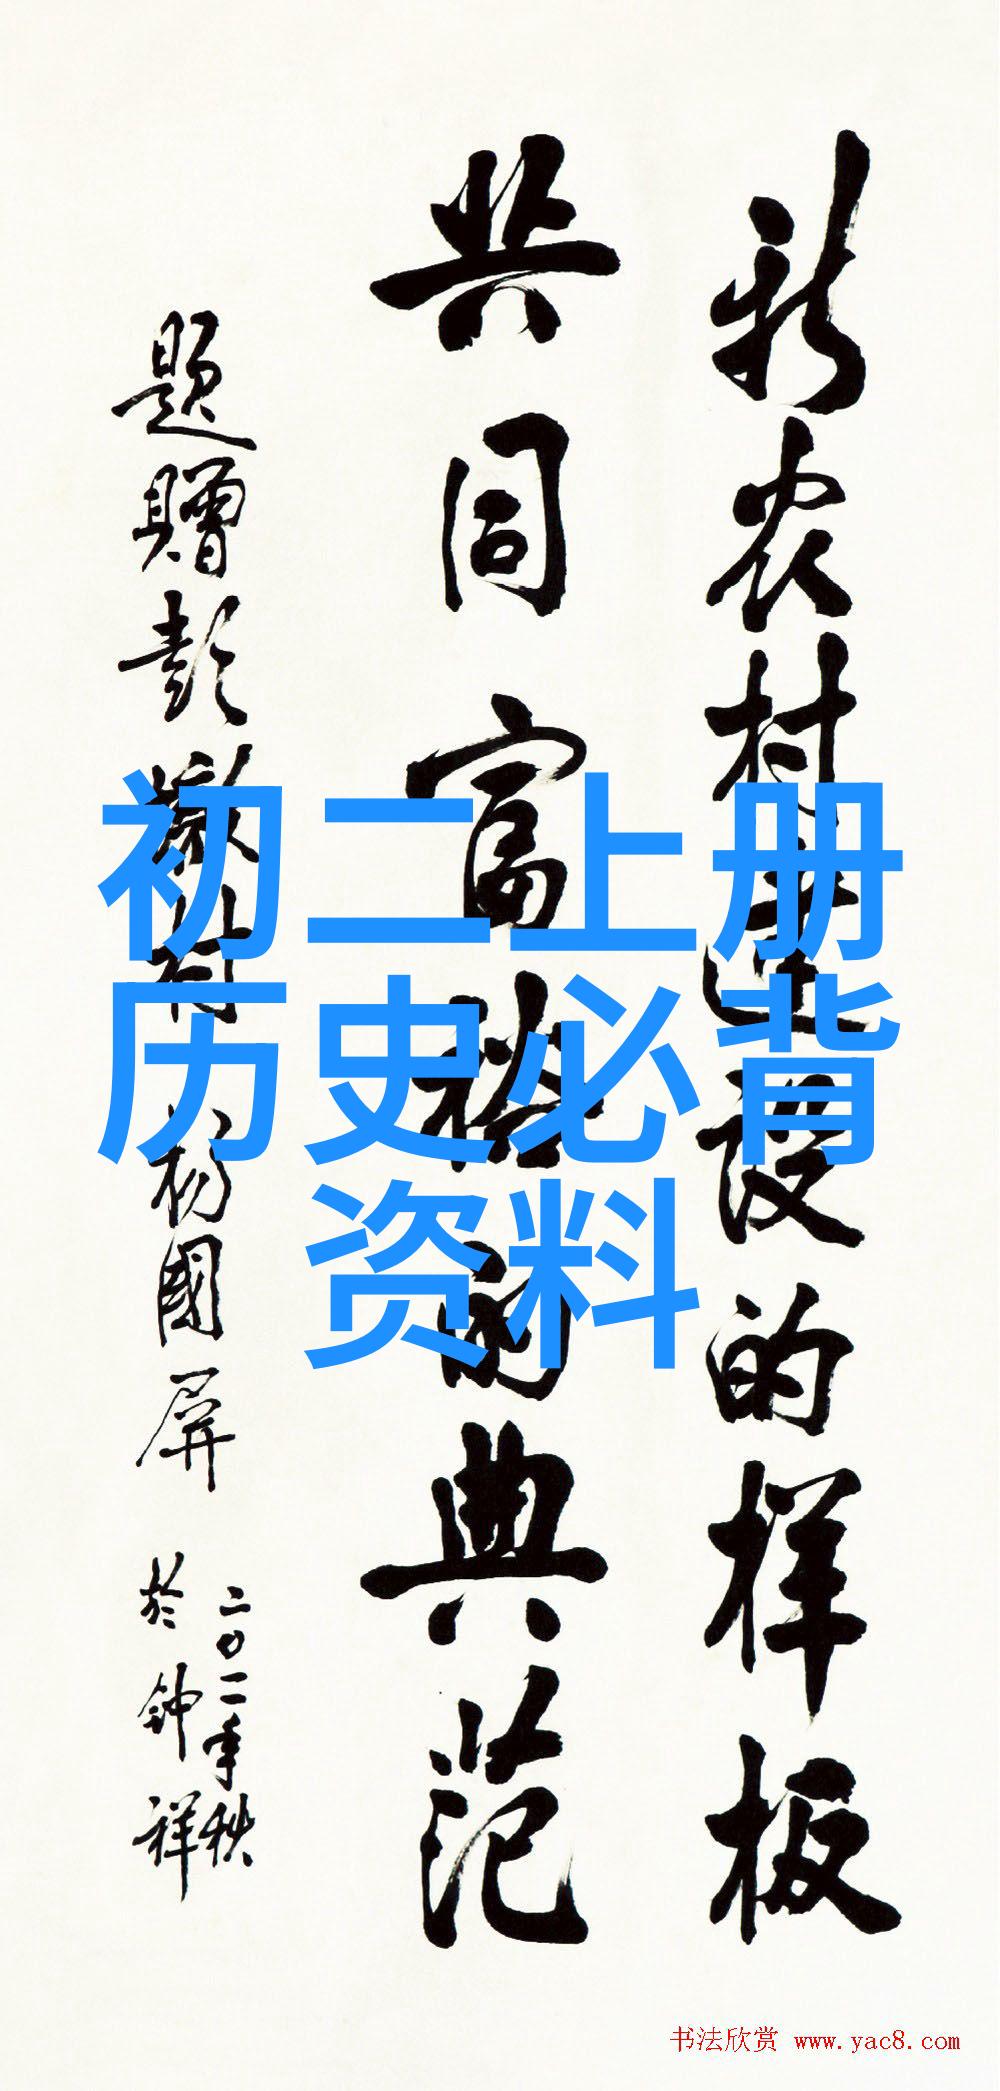 新农村建设的样板
共同富裕的典范
题赠彭墩村 杨国屏
二〇一一年秋
於钟祥
初二上册
历史必背
资料
书法欣赏 www.yac8.com